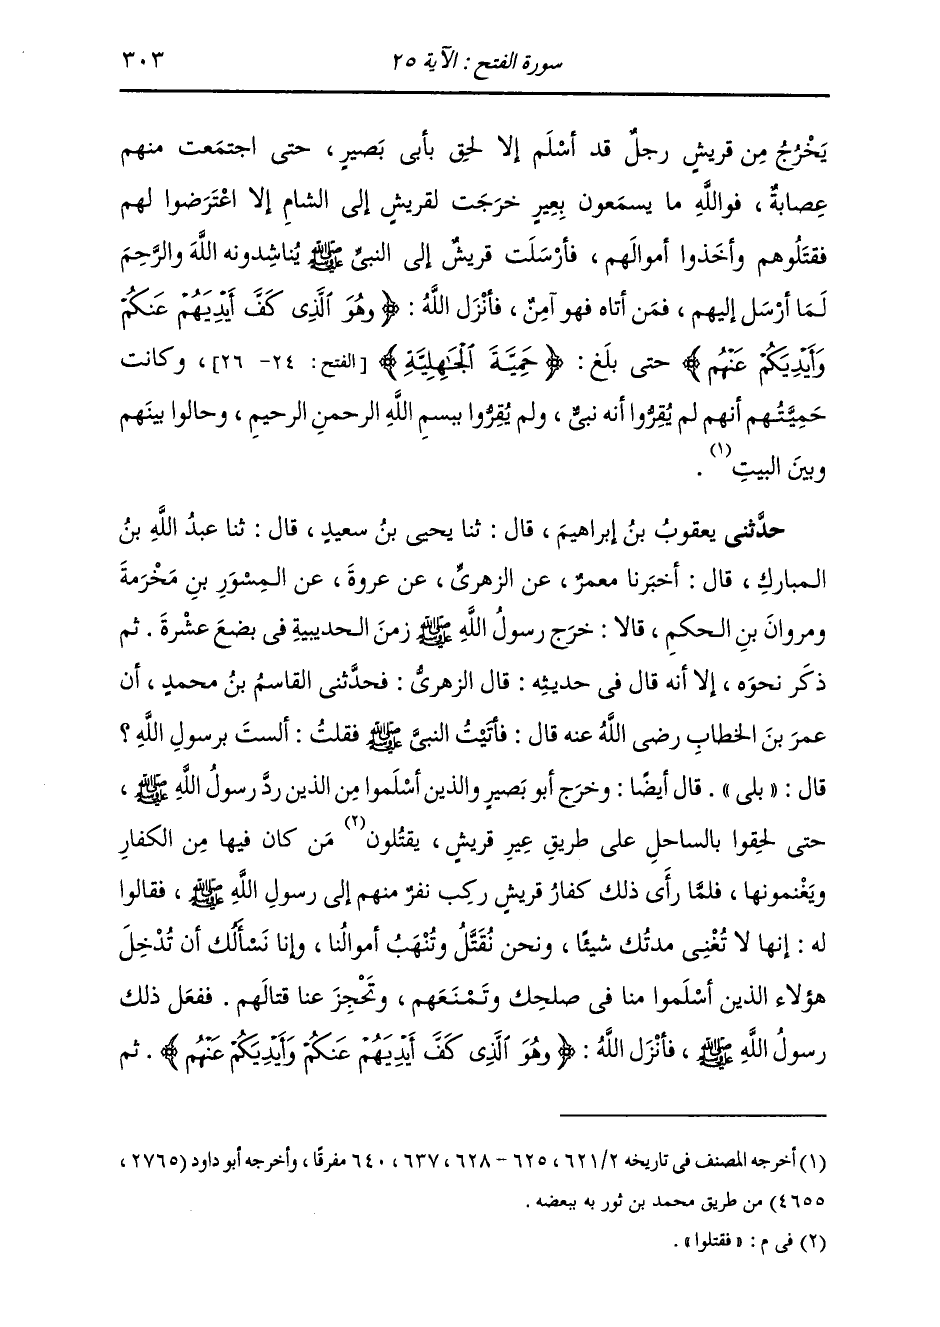 سورة الفتح : الآية ٢٥ ٣٠٣
يَخْرُجُ مِن قريشٍ رجلٌ قد أسْلَم إلا لحِق بأبى بَصيرٍ ، حتى اجتمَعت منهم
عِصابةٌ ، فواللَّهِ ما يسمَعون بِعِيرٍ خرَجَت لقريشٍ إلى الشامِ إلا اعْتَرَضوا لهم
فقتَلُوهم وأخَذوا أموالَهم ، فأرْسَلَت قريشٌ إلى النبىِّ ﷺ يُناشِدونه اللَّهَ والرَّحِمَ
لَمَا أرْسَل إليهم ، فمَن أتاه فهو آمِنٌ ، فأنْزَل اللَّهُ : ﴿ وَهُوَ ٱلَّذِى كَفَّ أَيْدِيَهُمْ عَنكُمْ
وَأَيْدِيَكُمْ عَنْهُم ﴾ حتى بلَغ : ﴿ حَمِيَّةَ ٱلْجَٰهِلِيَّةِ ﴾ [الفتح: ٢٤- ٢٦] ، وكانت
حَمِيَّتُهم أنهم لم يُقِرُّوا أنه نبىٌّ ، ولم يُقِرُّوا ببسمِ اللَّهِ الرحمنِ الرحيمِ ، وحالوا بينَهم
وبينَ البيتِ(١) .
حدَّثنى يعقوبُ بنُ إبراهيمَ ، قال : ثنا يحيى بنُ سعيدٍ ، قال : ثنا عبدُ اللَّهِ بنُ
المباركِ ، قال : أخبَرنا معمرٌ ، عن الزهرىِّ ، عن عروةَ ، عن المِسْوَرِ بنِ مَخْرَمةَ
ومروانَ بنِ الحكمِ ، قالا : خرَج رسولُ اللَّهِ ﷺ زمنَ الحديبيةِ فى بضعَ عشْرةَ . ثم
ذكَر نحوَه ، إلا أنه قال فى حديثِه : قال الزهرىُّ : فحدَّثنى القاسمُ بنُ محمدٍ ، أن
عمرَ بنَ الخطابِ رضى اللَّهُ عنه قال : فأتَيْتُ النبىَّ ﷺ فقلتُ : ألستَ برسولِ اللَّهِ ؟
قال : « بلى » . قال أيضًا : وخرَج أبو بَصيرٍ والذين أسْلَموا مِن الذين ردَّ رسولُ اللَّهِ ﷺ ،
حتى لحِقوا بالساحلِ على طريقِ عِيرِ قريشٍ ، يقتُلون(٢) مَن كان فيها مِن الكفارِ
ويَغْنمونها ، فلمَّا رأَى ذلك كفارُ قريشٍ ركِب نفرٌ منهم إلى رسولِ اللَّهِ ﷺ ، فقالوا
له : إنها لا تُغْنِى مدتُك شيئًا ، ونحن نُقَتَّلُ وتُنْهَبُ أموالُنا ، وإنا نَسْأَلُك أن تُدْخِلَ
هؤلاء الذين أسْلَموا منا فى صلحِك وتَمْنَعَهم ، وتَحْجِزَ عنا قتالَهم . ففعَل ذلك
رسولُ اللَّهِ ﷺ ، فأنْزَل اللَّهُ : ﴿ وَهُوَ ٱلَّذِى كَفَّ أَيْدِيَهُمْ عَنكُمْ وَأَيْدِيَكُمْ عَنْهُم ﴾ . ثم
(١) أخرجه المصنف فى تاريخه ٦٢١/٢ ، ٦٢٥ - ٦٢٨ ، ٦٣٧ ، ٦٤٠ مفرقًا ، وأخرجه أبو داود (٢٧٦٥ ،
٤٦٥٥) من طريق محمد بن ثور به ببعضه .
(٢) فى م : « فقتلوا » .